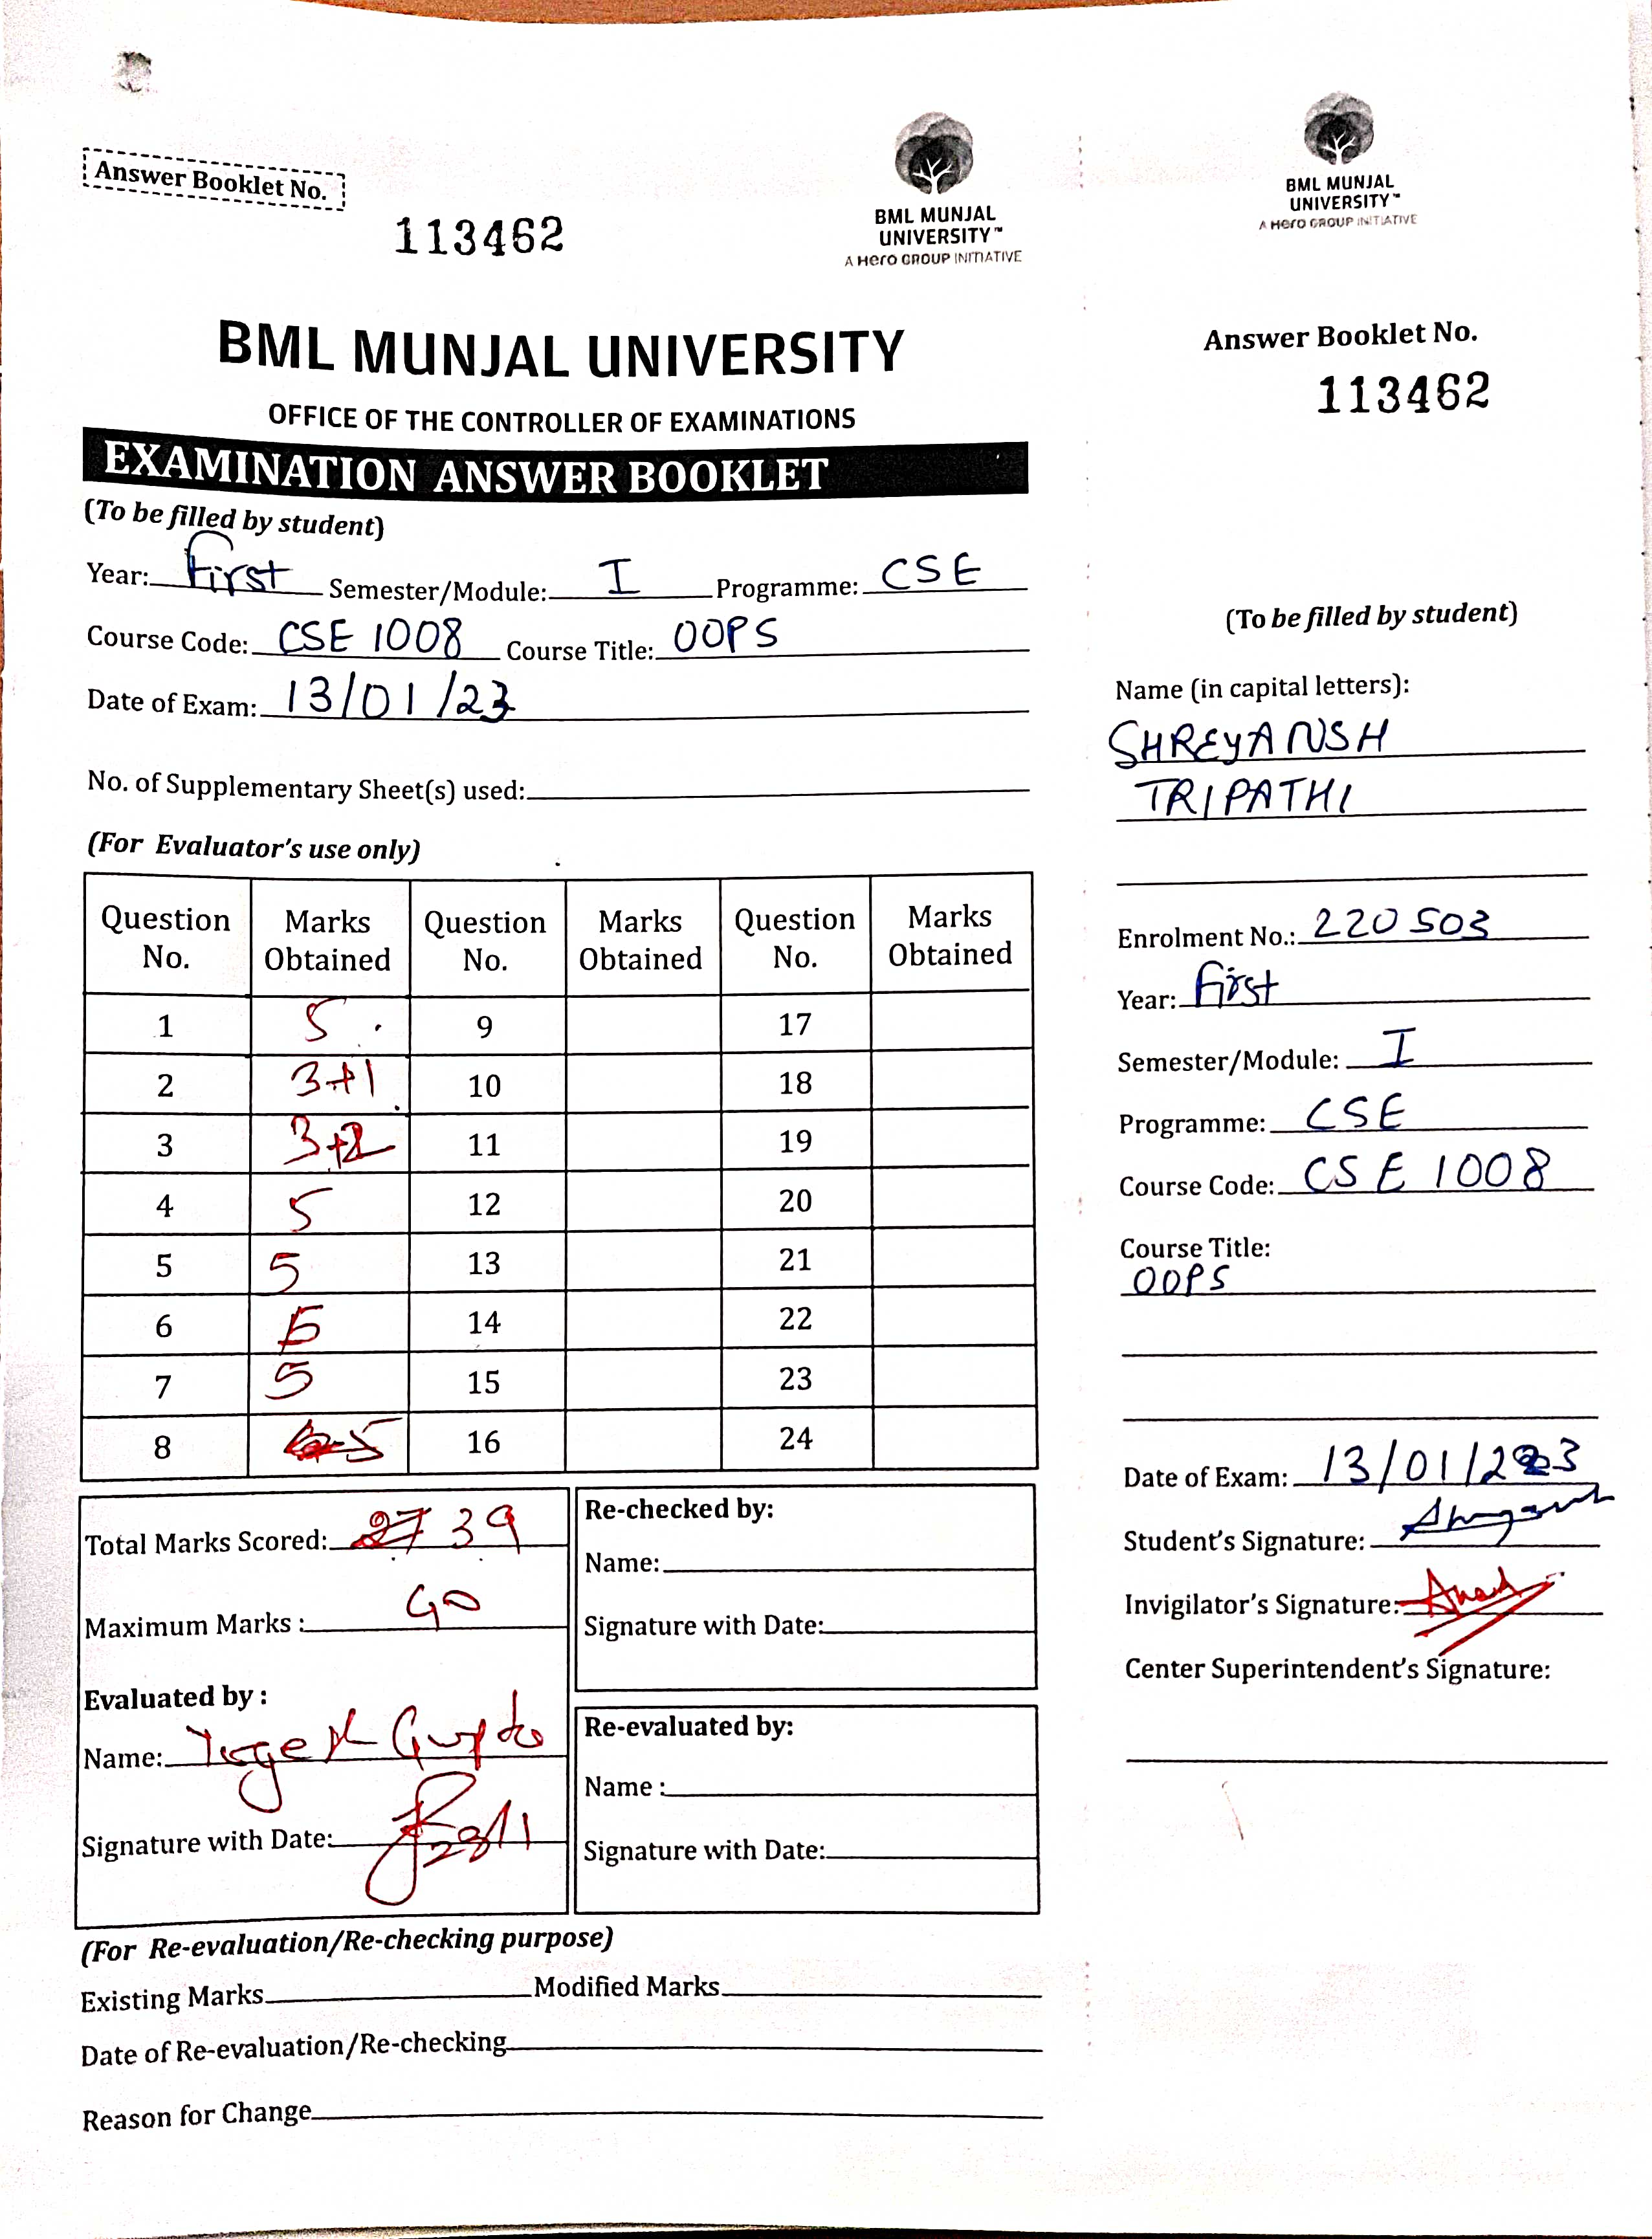 Answer Booklet No.
113462
BML MUNJAL
UNIVERSITY™
A Hero GROUP INITIATIVE
BML MUNJAL UNIVERSITY
OFFICE OF THE CONTROLLER OF EXAMINATIONS
EXAMINATION ANSWER BOOKLET
(To be filled by student)
Year: First Semester/Module: I Programme: CSE
Course Code: CSE 1008 Course Title: OOPS
Date of Exam: 13/01/23
No. of Supplementary Sheet(s) used:
(For Evaluator's use only)
Question No. Marks Obtained Question No. Marks Obtained Question No. Marks Obtained
1 5 9 17
2 3+1 10 18
3 3+2 11 19
4 5 12 20
5 5 13 21
6 5 14 22
7 5 15 23
8 5 16 24
Total Marks Scored: 27 39
Maximum Marks : 40
Evaluated by :
Name: Yogesh Gupta
Signature with Date: 23/1
Re-checked by:
Name:
Signature with Date:
Re-evaluated by:
Name :
Signature with Date:
(For Re-evaluation/Re-checking purpose)
Existing Marks Modified Marks
Date of Re-evaluation/Re-checking
Reason for Change
BML MUNJAL
UNIVERSITY™
A Hero GROUP INITIATIVE
Answer Booklet No.
113462
(To be filled by student)
Name (in capital letters):
SHREYANSH
TRIPATHI
Enrolment No.: 220503
Year: First
Semester/Module: I
Programme: CSE
Course Code: CSE 1008
Course Title:
OOPS
Date of Exam: 13/01/23
Student's Signature:
Invigilator's Signature:
Center Superintendent's Signature: